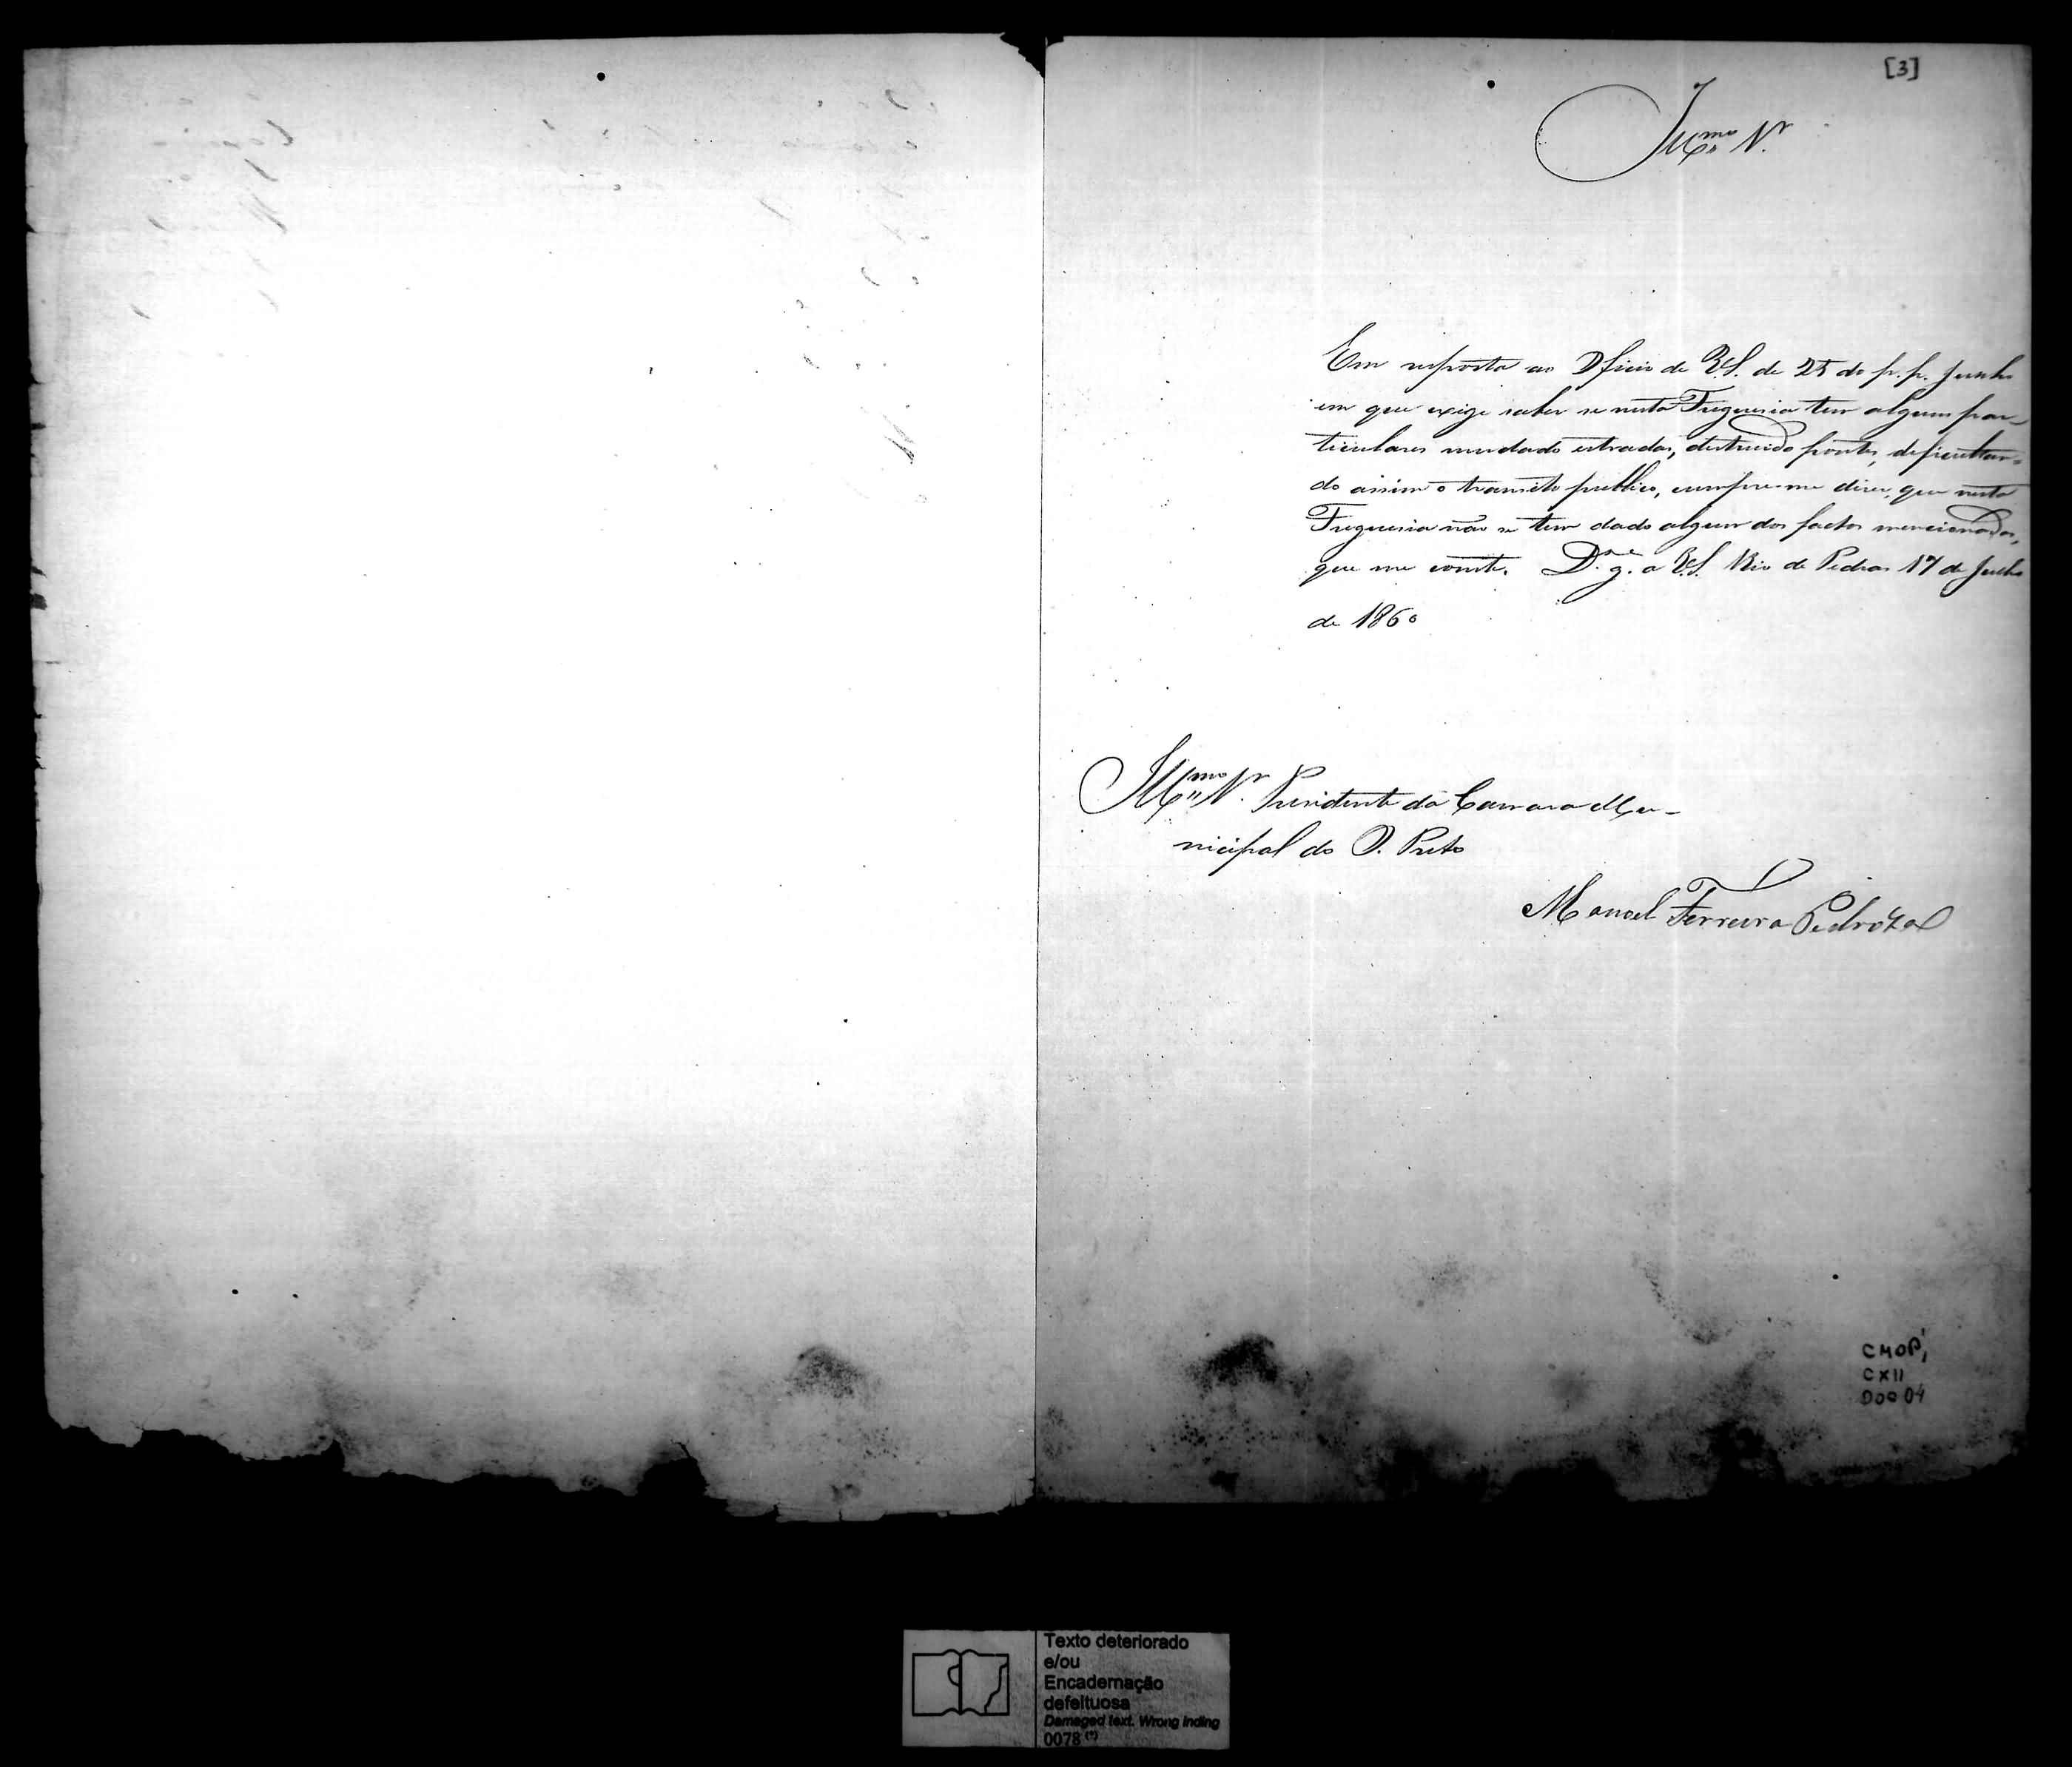 [3]
Illmo Sr
Em resposta ao Officio de V.S. de 25 do p.p. Junho
em que exige saber se nesta Freguesia tem algum par-
ticulares mudado estradas, destruido pontes, deficultan-
do assim o transito publico, cumpre-me dizer, que nesta
Freguesia não se tem dado algum dos factos mencionados,
que me conste. Ds. g.e a V.S. Rio de Pedras 17 de Julho
de 1860
Illmo Sr. Presidente da Camara Mu-
nicipal do O. Preto
Manoel Ferreira Pedroza
CMOP,
CX11
DOC 04
Texto deteriorado
e/ou
Encadernação
defeituosa
Damaged text. Wrong inding
0078 (*)